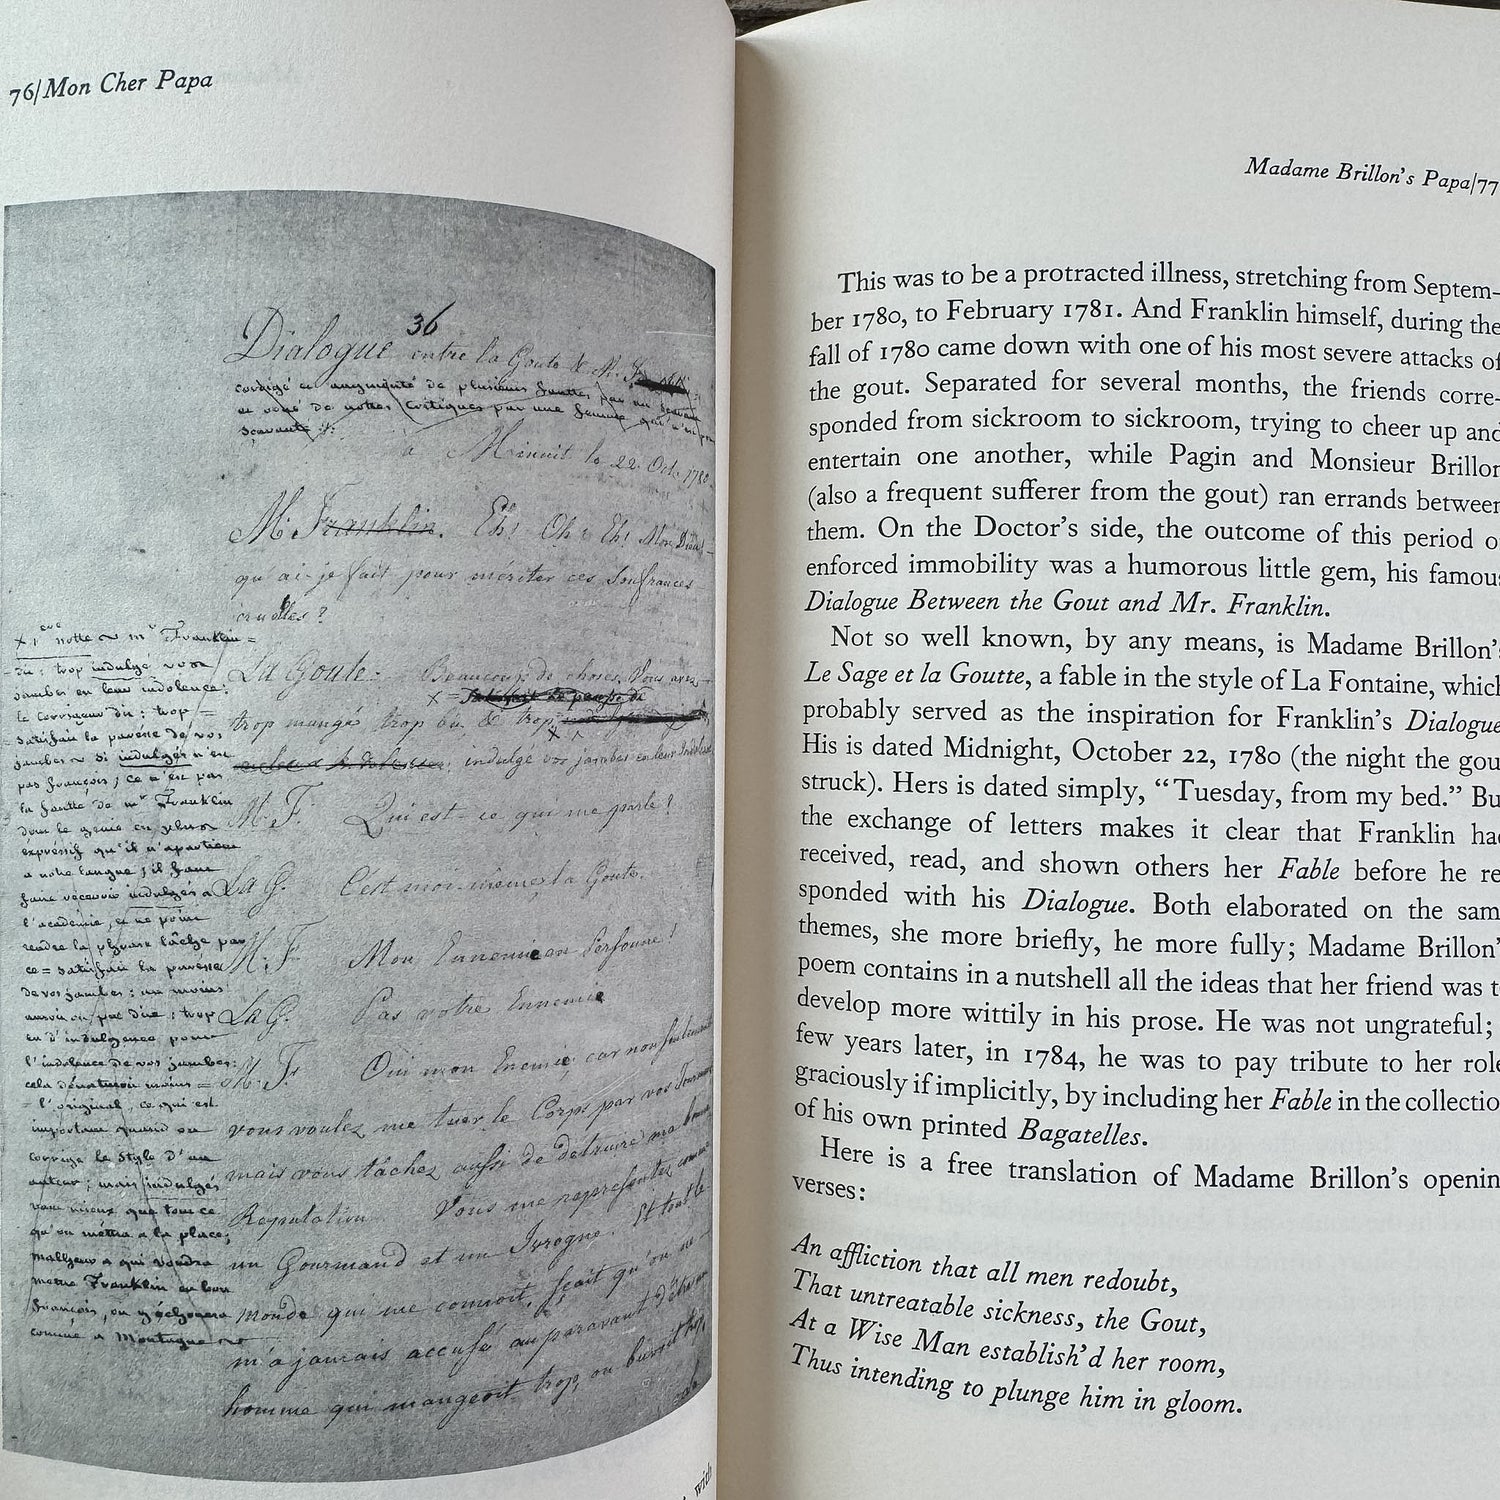 76/Mon Cher Papa
36
Dialogue entre la Goute & M. F
corrigé et augmenté de plusieurs fauttes par un sçavant
et orné de nottes critiques par une femme qui n'est pas
sçavante :/:
à Minuit le 22. Oct. 1780
M. Franklin. Eh! Oh! Eh! Mon Dieu!
qu'ai-je fait pour mériter ces Souffrances
cruelles?
La Goute. Beaucoup de choses. Vous avez
trop mangé, trop bu, & trop
indulgé vos jambes en leur Indolence
M. F. Qui est-ce qui me parle?
La G. C'est moi-même, la Goute.
M. F. Mon Ennemie en Personne!
La G. Pas votre Ennemie
M. F. Oui mon Enemie, car non seulement
vous voulez me tuer le Corps par vos Tourmens
mais vous tâchez aussi de détruire ma bonne
Reputation. Vous me representez comme
un Gourmand et un Ivrogne. Et tout le
monde qui me connoit, sçait qu'on ne
m'a jamais accusé auparavant d'être un
homme qui mangeoit trop, ou buvoit trop,
notte mr Franklin
dit: trop indulgé vos
jambes en leur indolence;
le correcteur dit: trop
satisfait la paresse de vos
jambes indulgér n'est
pas françois; ce n'est pas
la fautte de mr Franklin
dont le genie est plus
expressif qu'il n'apartient
a notre langue; il faut
faire recevoir indulgér a
l'academie, et ne point
rendre la phrase lâche par
ce = satisfait la paresse
de vos jambes; au moins
auroit on pu dire; trop
eu d'indulgence pour
l'indolence de vos jambes:
cela dénaturoit moins
l'original, ce qui est
important quand on
corrige le style d'un
auteur; mais indulgér
vaut mieux que tout ce
qu'on mettra a la place;
malheur a qui voudra
mettre Franklin en bon
françois, on y échouera
comme a Montagne
with
Madame Brillon's Papa/77
This was to be a protracted illness, stretching from Septem-
ber 1780, to February 1781. And Franklin himself, during the
fall of 1780 came down with one of his most severe attacks of
the gout. Separated for several months, the friends corre-
sponded from sickroom to sickroom, trying to cheer up and
entertain one another, while Pagin and Monsieur Brillon
(also a frequent sufferer from the gout) ran errands between
them. On the Doctor's side, the outcome of this period o
enforced immobility was a humorous little gem, his famous
Dialogue Between the Gout and Mr. Franklin.
Not so well known, by any means, is Madame Brillon's
Le Sage et la Goutte, a fable in the style of La Fontaine, which
probably served as the inspiration for Franklin's Dialogue.
His is dated Midnight, October 22, 1780 (the night the gou
struck). Hers is dated simply, "Tuesday, from my bed." Bu
the exchange of letters makes it clear that Franklin had
received, read, and shown others her Fable before he re
sponded with his Dialogue. Both elaborated on the sam
themes, she more briefly, he more fully; Madame Brillon'
poem contains in a nutshell all the ideas that her friend was t
develop more wittily in his prose. He was not ungrateful;
few years later, in 1784, he was to pay tribute to her role
graciously if implicitly, by including her Fable in the collectio
of his own printed Bagatelles.
Here is a free translation of Madame Brillon's openin
verses:
An affliction that all men redoubt,
That untreatable sickness, the Gout,
At a Wise Man establish'd her room,
Thus intending to plunge him in gloom.